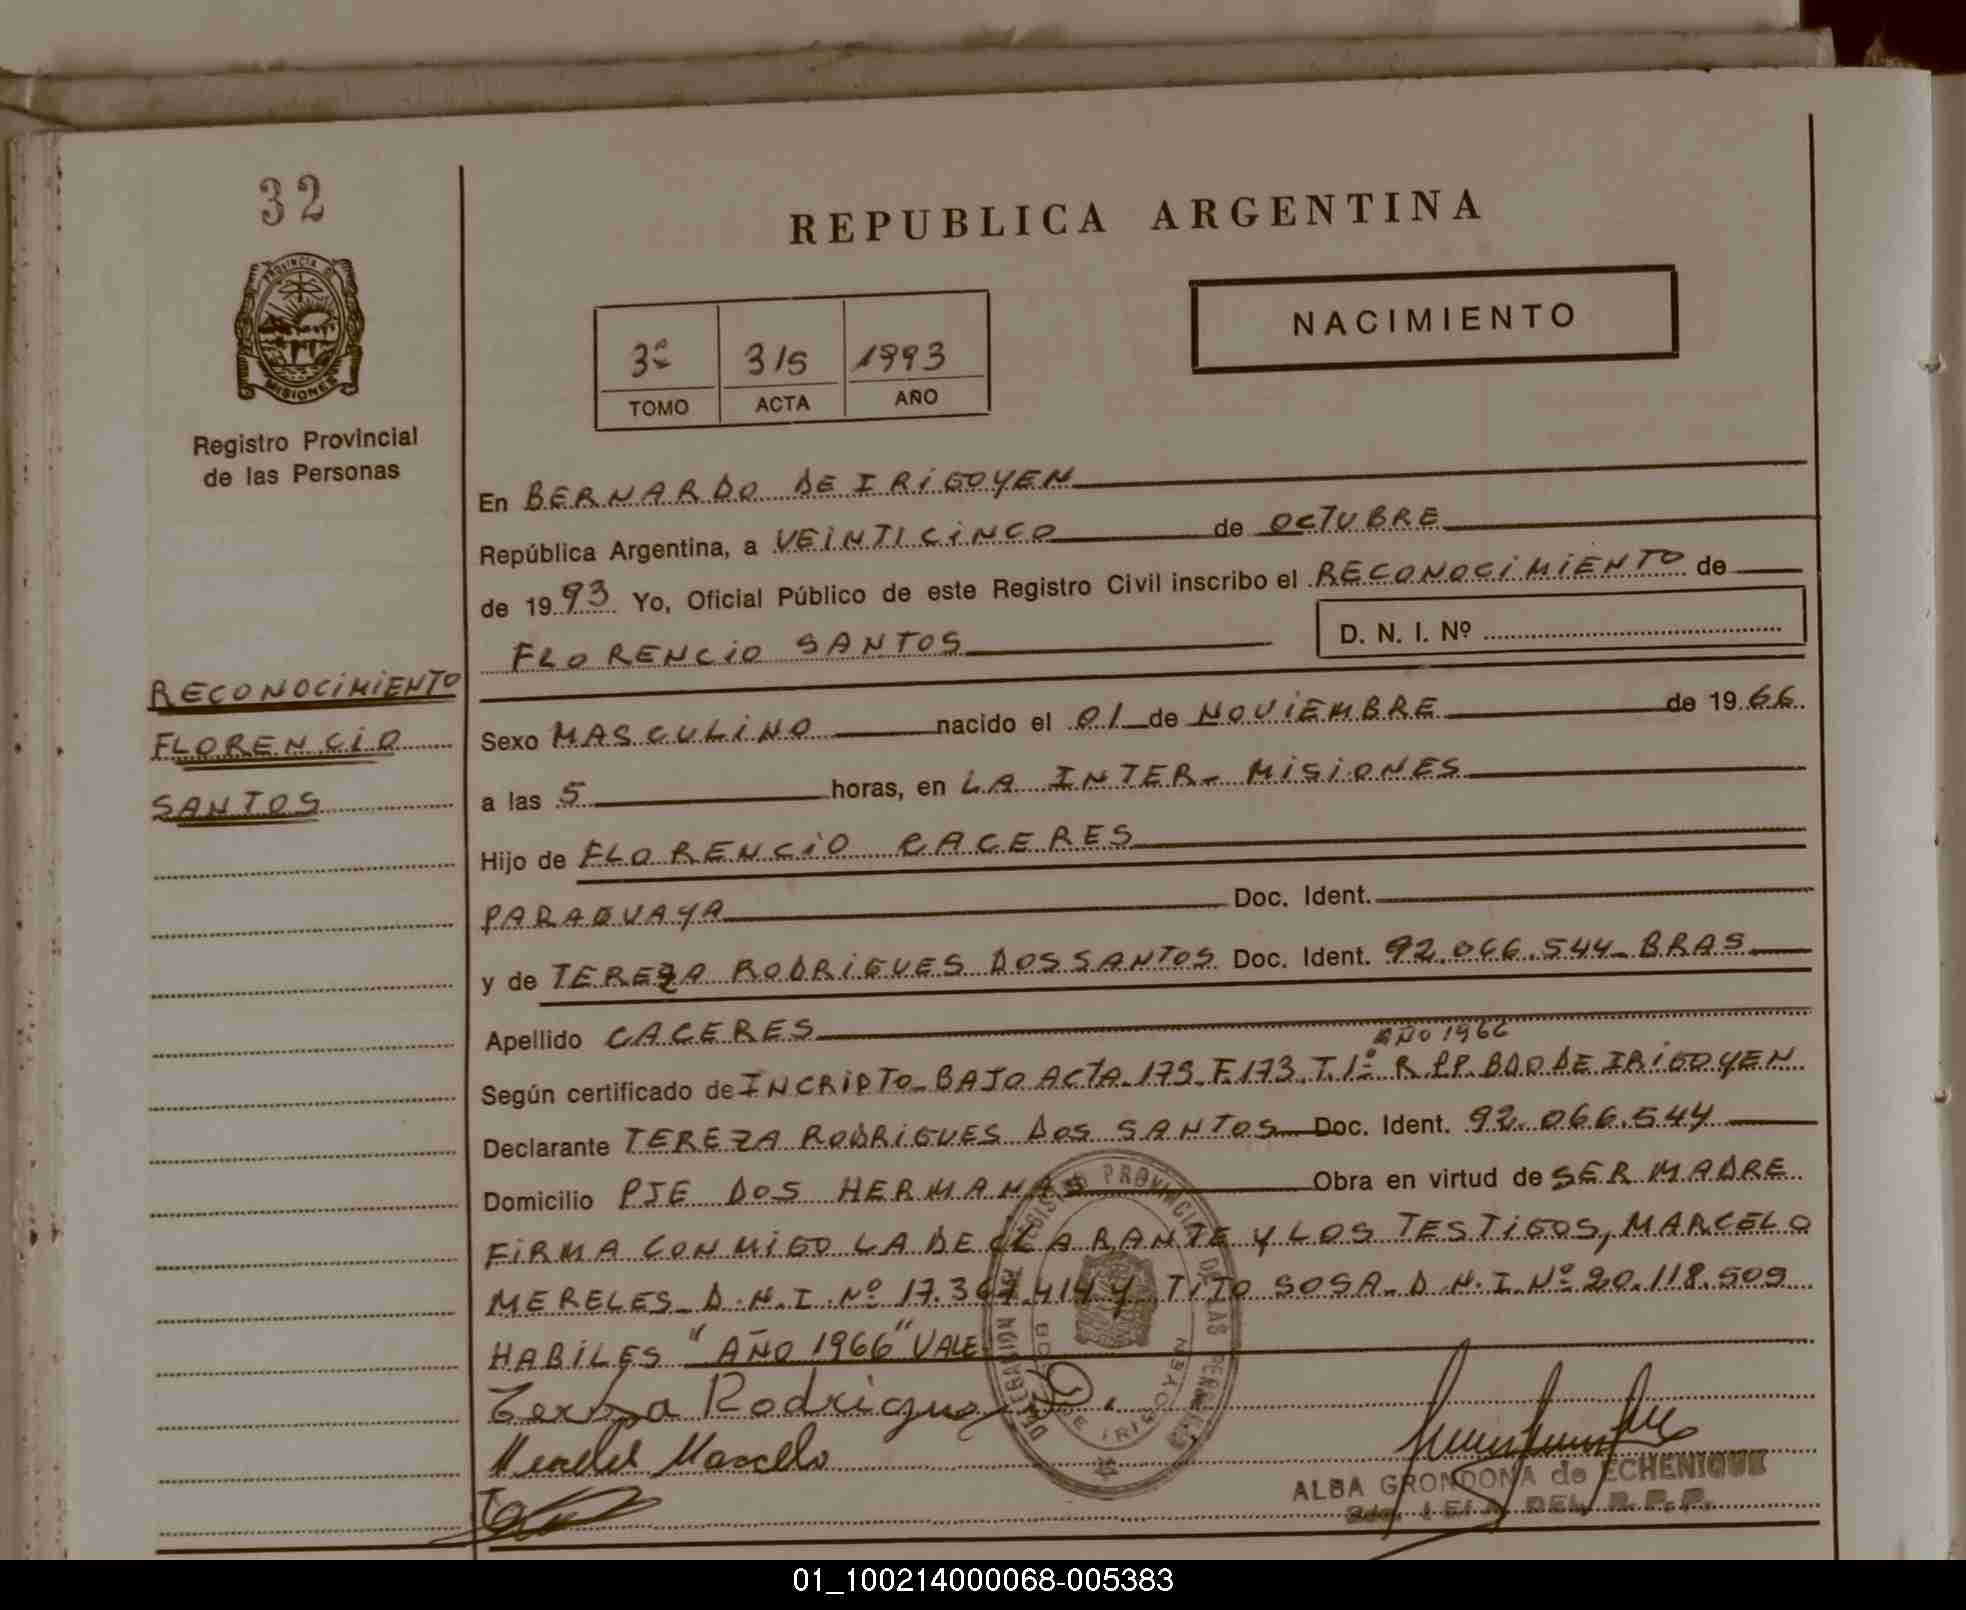 32
PROVINCIA DE
MISIONES
Registro Provincial
de las Personas
REPUBLICA ARGENTINA
NACIMIENTO
3º 315 1993
TOMO ACTA AÑO
En BERNARDO DE IRIGOYEN
República Argentina, a VEINTICINCO de OCTUBRE
de 1993 Yo, Oficial Público de este Registro Civil inscribo el RECONOCIMIENTO de
FLORENCIO SANTOS D. N. I. Nº
RECONOCIMIENTO
FLORENCIO
SANTOS
Sexo MASCULINO nacido el 01 de NOVIEMBRE de 1966.
a las 5 horas, en LA INTER- MISIONES
Hijo de FLORENCIO CACERES
PARAGUAYA Doc. Ident.
y de TEREZA RODRIGUES DOS SANTOS Doc. Ident. 92.066.544- BRAS
Apellido CACERES
AÑO 1966
Según certificado de INCRIPTO BAJO ACTA 173 F.173 T.1º R.P.P. BDO DE IRIGOYEN
Declarante TEREZA RODRIGUES DOS SANTOS Doc. Ident. 92.066.544
Domicilio PJE DOS HERMANAS Obra en virtud de SER MADRE
FIRMA CONMIGO LA DECLARANTE Y LOS TESTIGOS, MARCELO
MERELES D.N.I. Nº 17.367.414 Y TITO SOSA D.N.I. Nº 20.118.509
HABILES "AÑO 1966" VALE
REGISTRO PROVINCIAL DE LAS PERSONAS
BDO. DE IRIGOYEN
Marcelo
ALBA GRONDONA de ECHENIQUE
DEL R.P.P.
01_100214000068-005383